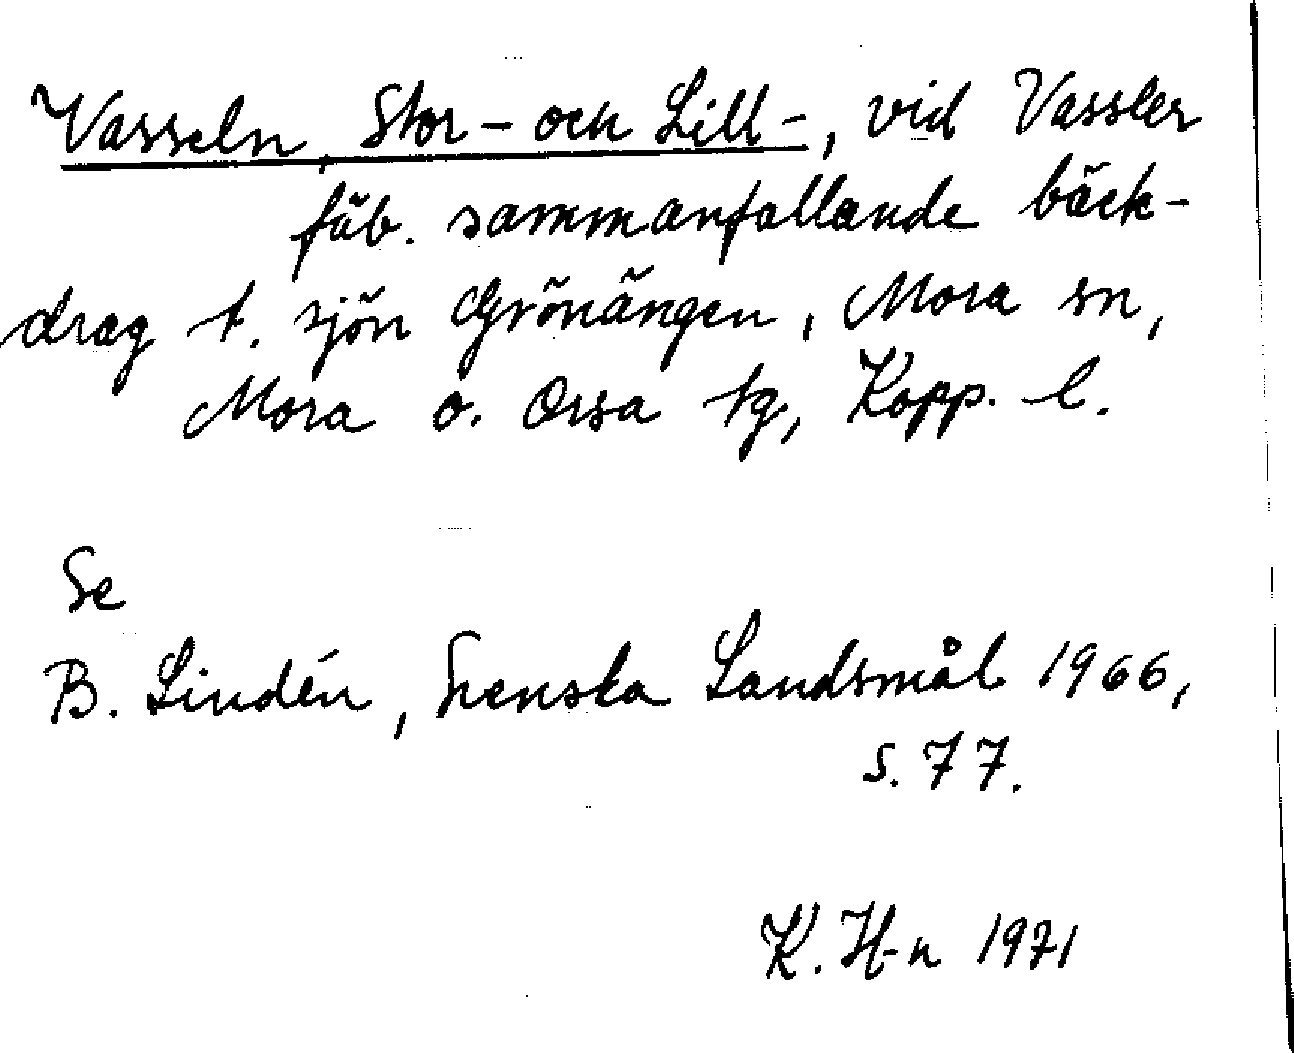 Vasseln, Stor- och Lill-, vid Vassler
fäb. sammanfallande bäck-
drag t. sjön Grönängen, Mora sn,
Mora o. Orsa tg, Kopp. l.
Se
B. Lindén, Svenska Landsmål 1966,
s. 77.
K. H-n 1971